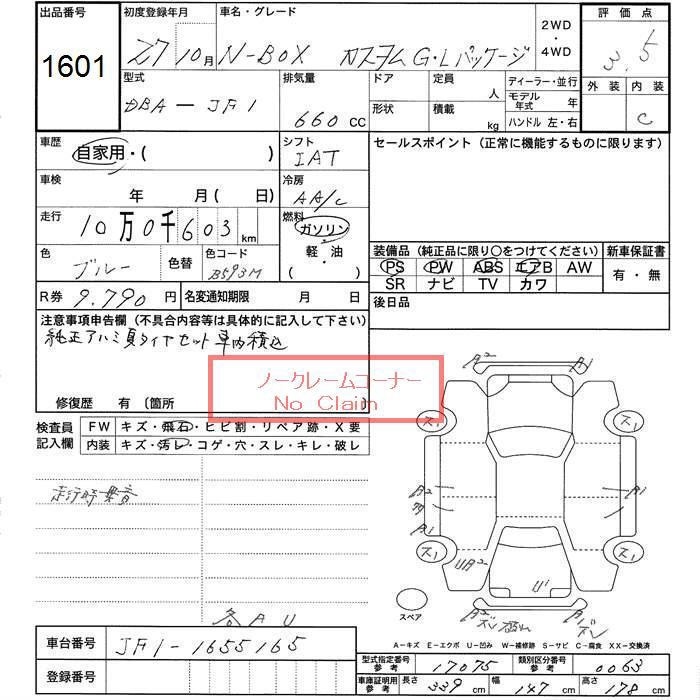 出品番号 初度登録年月 車名・グレード 2WD ・ 4WD 評価点
1601 27 10月 N-BOX カスタム G・Lパッケージ 3.5
型式 排気量 ドア 定員 人 ディーラー・並行 外装 内装
DBA-JF1 660cc 形状 積載 kg モデル年式 年 C
ハンドル 左・右
車歴 自家用・( ) シフト IAT セールスポイント(正常に機能するものに限ります)
車検 年 月(日) 冷房 AA/C
走行 10万0千603km 燃料 ガソリン
軽・油
・( )
色 ブルー 色替 色コード B593M
装備品(純正品に限り○をつけてください) 新車保証書
PS PW ABS エアB AW 有・無
SR ナビ TV カワ
R券 9.790円 名変通知期限 月 日 後日品
注意事項申告欄(不具合内容等は具体的に記入して下さい)
純正アルミ夏タイヤセット車内積込
ノークレームコーナー
No Claim
修復歴 有〔箇所 〕
検査員記入欄 FW キズ・飛石・ヒビ割・リペア跡・X要
内装 キズ・汚レ・コゲ・穴・スレ・キレ・破レ
走行時異音
各AU
A2 A1
ス1 ス1
A2 A1
A1
ス1 ス1
UA2 U1
スペア A2 A1
A-キズ E-エクボ U-凹み W-補修跡 S-サビ C-腐食 XX-交換済
車台番号 JF1-1655165
型式指定番号 参考 17075 類別区分番号 参考 0063
登録番号
車庫証明用 参考 長さ 339cm 幅 147cm 高さ 178cm